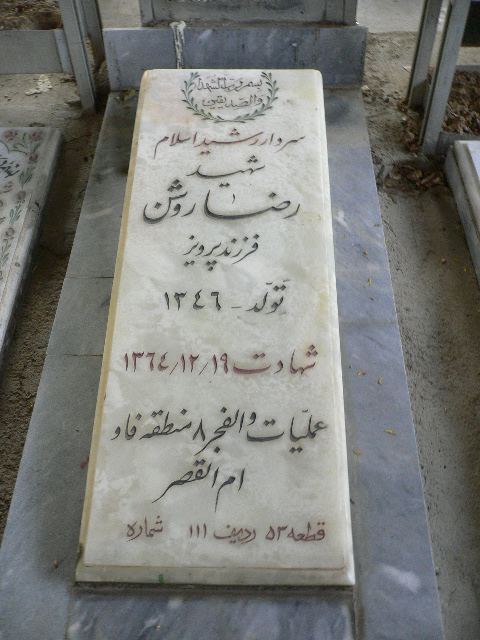 بسم رب الشهداء
والصدیقین
سردار رشید اسلام
شهید
رضا روشن
فرزند پرویز
تولّد - ۱۳۴۶
شهادت ۱۳۶۴/۱۲/۱۹
عملیّات والفجر ۸ منطقه فاو
ام القصر
قطعه ۵۳ ردیف ۱۱۱ شماره